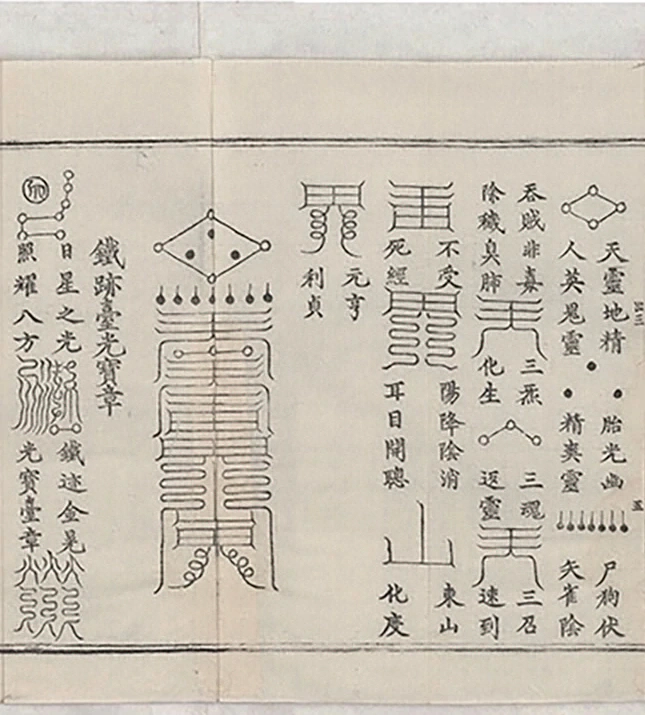 天靈地精
人英靈
胎光幽
精爽靈
尸狗伏
矢雀陰
吞賊非毒
除穢臭肺
三炁
化生
三魂
返靈
三召
速到
不受
死經
陽降陰消
耳目開聰
東山
化度
元亨
利貞
鐵跡臺光寶章
日星之光
照耀八方
鐵迹金晃
光寶臺章